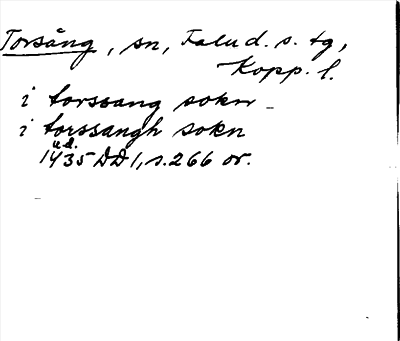 Torsång, sn, Falu d. s. tg,
Kopp. l.
i torssang sokn –
i torssangh sokn
u.d.
1435 DD 1, s. 266 or.